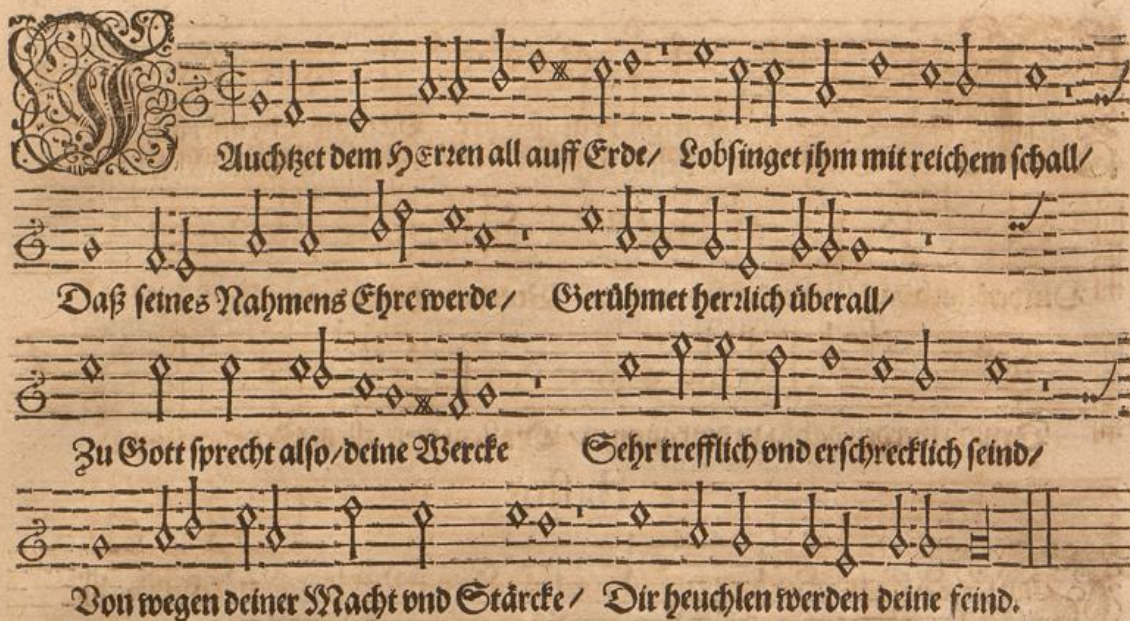 JAuchtzet dem HErren all auff Erde/ Lobsinget jhm mit reichem schall/
Daß seines Nahmens Ehre werde/ Gerühmet herrlich überall/
Zu Gott sprecht also/deine Wercke Sehr trefflich vnd erschrecklich seind/
Von wegen deiner Macht vnd Stärcke/ Dir heuchlen werden deine feind.